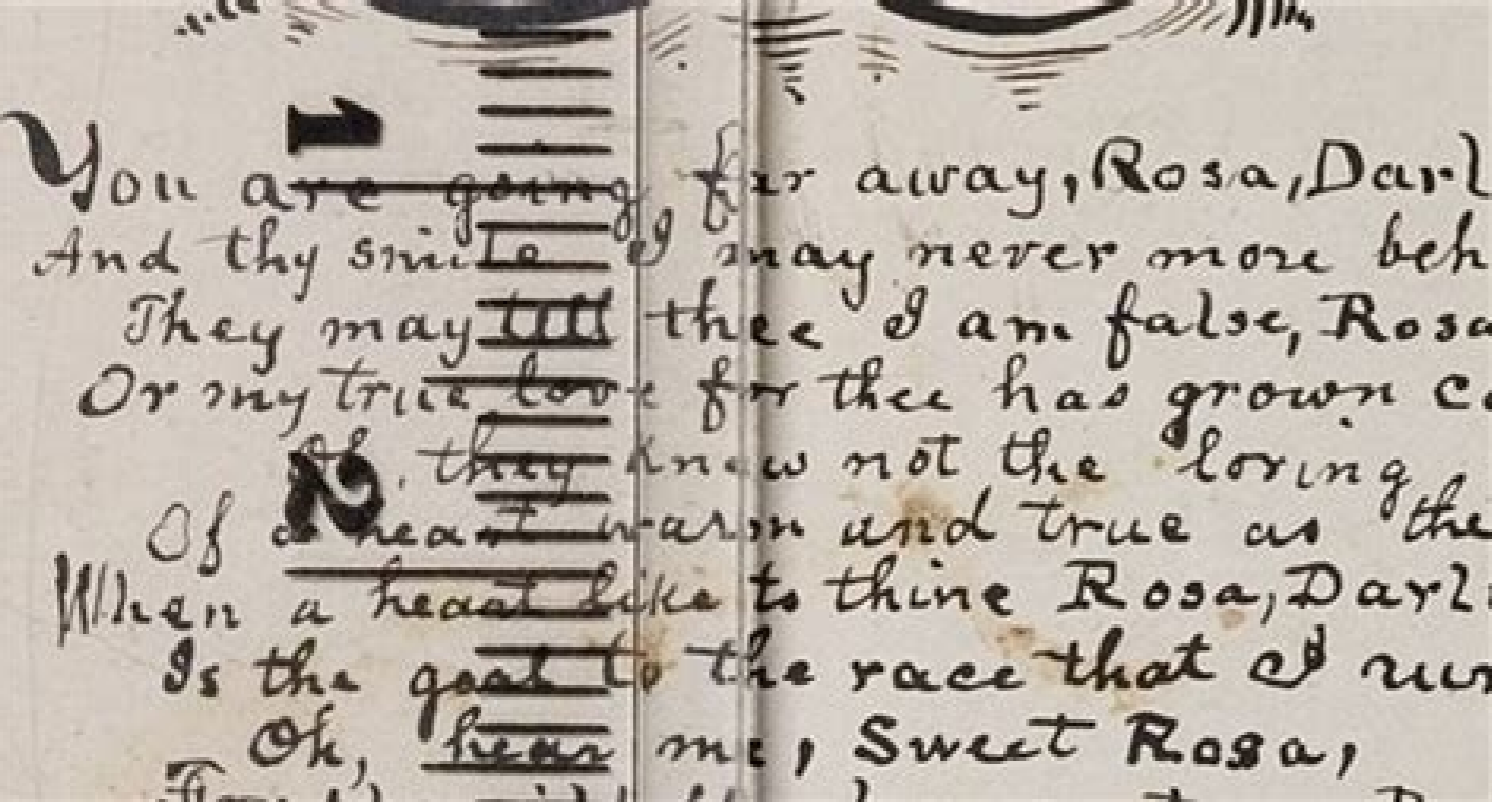 1
You are going far away, Rosa, Darl
And thy smile I may never more beh
They may till thee I am false, Rosa
Or my true love for thee has grown c
2
Oh, they know not the loving
Of a heart warm and true as the
When a heart like to thine Rosa, Darli
Is the goal to the race that I run
Oh, hear me, Sweet Rosa,